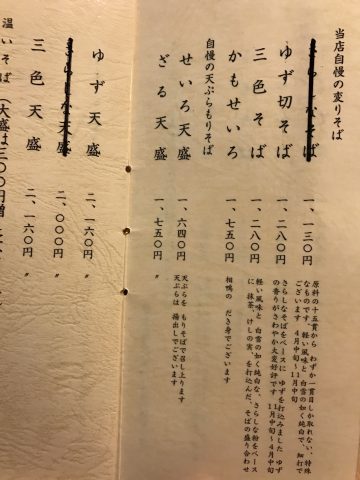 当店自慢の変りそば
さらしな 一、一三〇円
原料の十五貫から わずか一貫目しか取れない、特殊
なものです 軽い風味と 白雪の如く純白で、細打で
ございます 4月中旬～11月中旬
ゆず切そば 一、二八〇円
さらしなそばをベースに ゆずを打込みました ゆず
の香りがさわやか大変好評です 11月中旬～4月中旬
三色そば 一、二八〇円
軽い風味と 白雪の如く純白な、さらしな粉をベース
に、抹茶、けしの実 を打込んだ、そばの盛り合わせ
かもせいろ 一、七五〇円
相鴨の だき身でございます
自慢の天ぷらもりそば
せいろ天盛 一、六四〇円
天ぷらを もりそばで召し上ります
ざる天盛 一、七五〇円
天ぷらは 揚出しでございます
ゆず天盛 二、一六〇円 〃
さらしな天盛 二、〇〇〇円
三色天盛 二、一六〇円 〃
温いそば (大盛は三〇〇円増